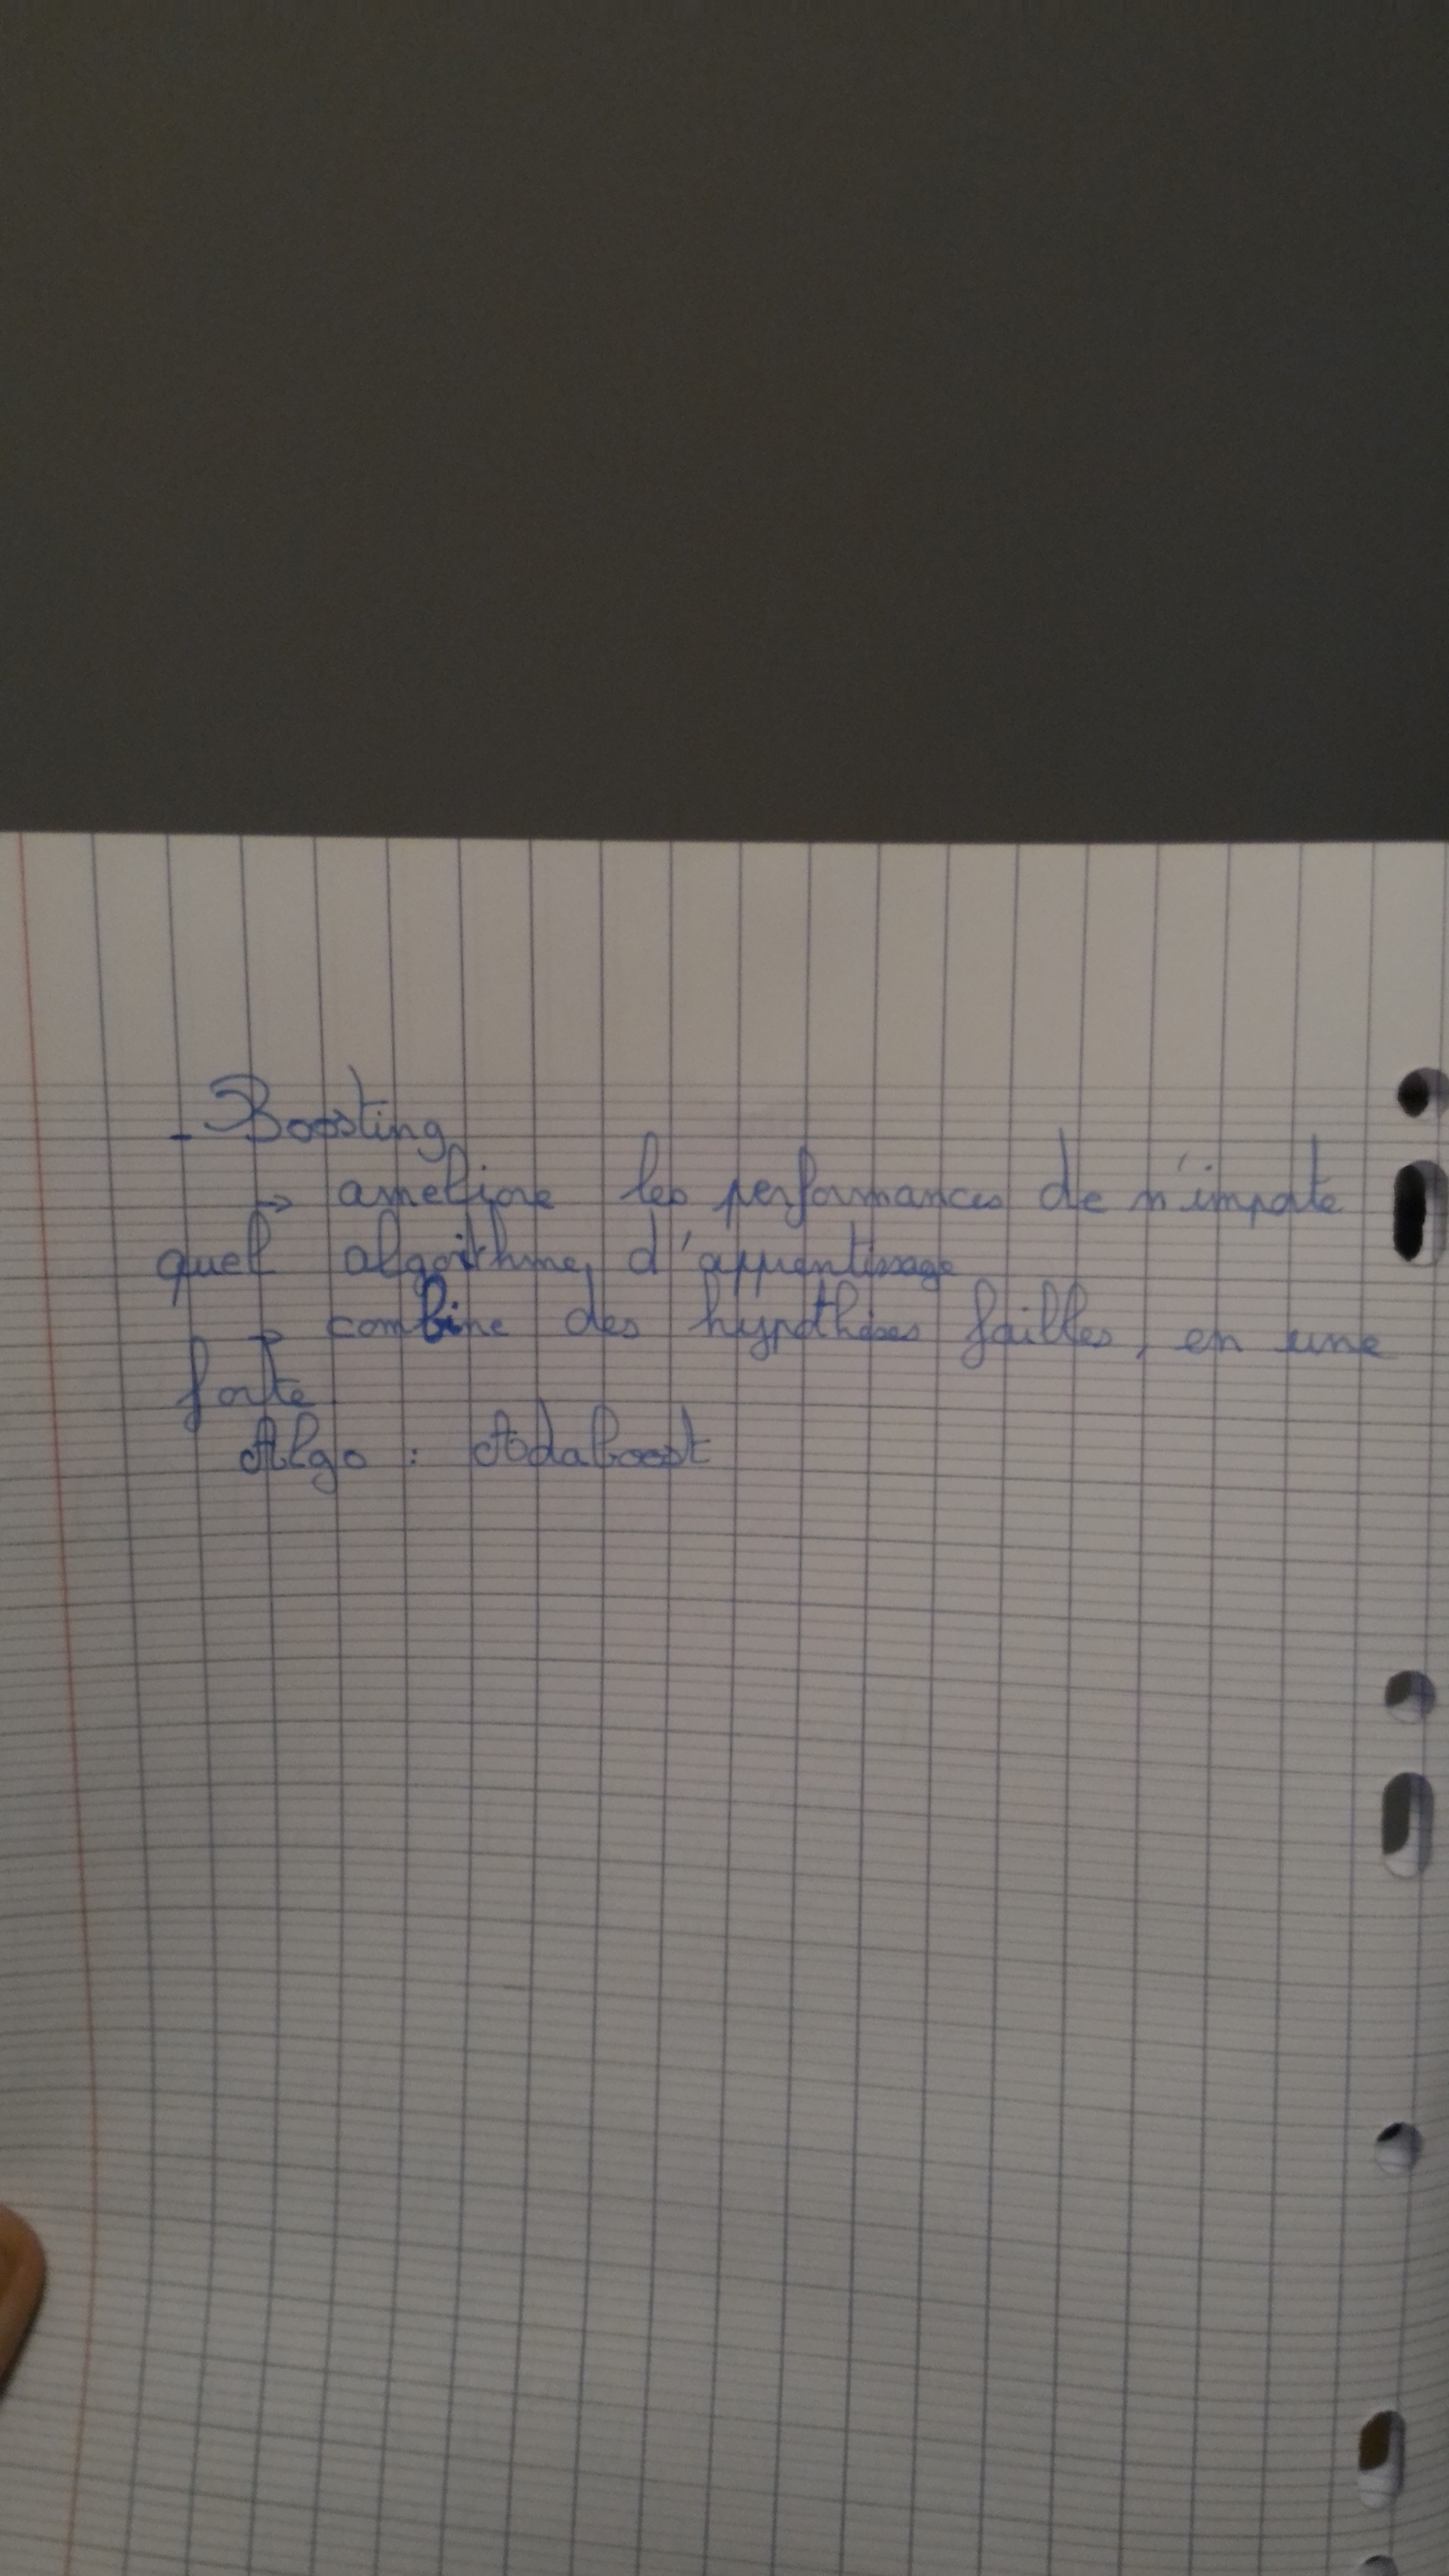 - Boosting
→ ameliore les performances de n'importe
quel algorithme d'apprentissage
→ combine des hypothèses failles, en une
forte
Algo : Adaboost